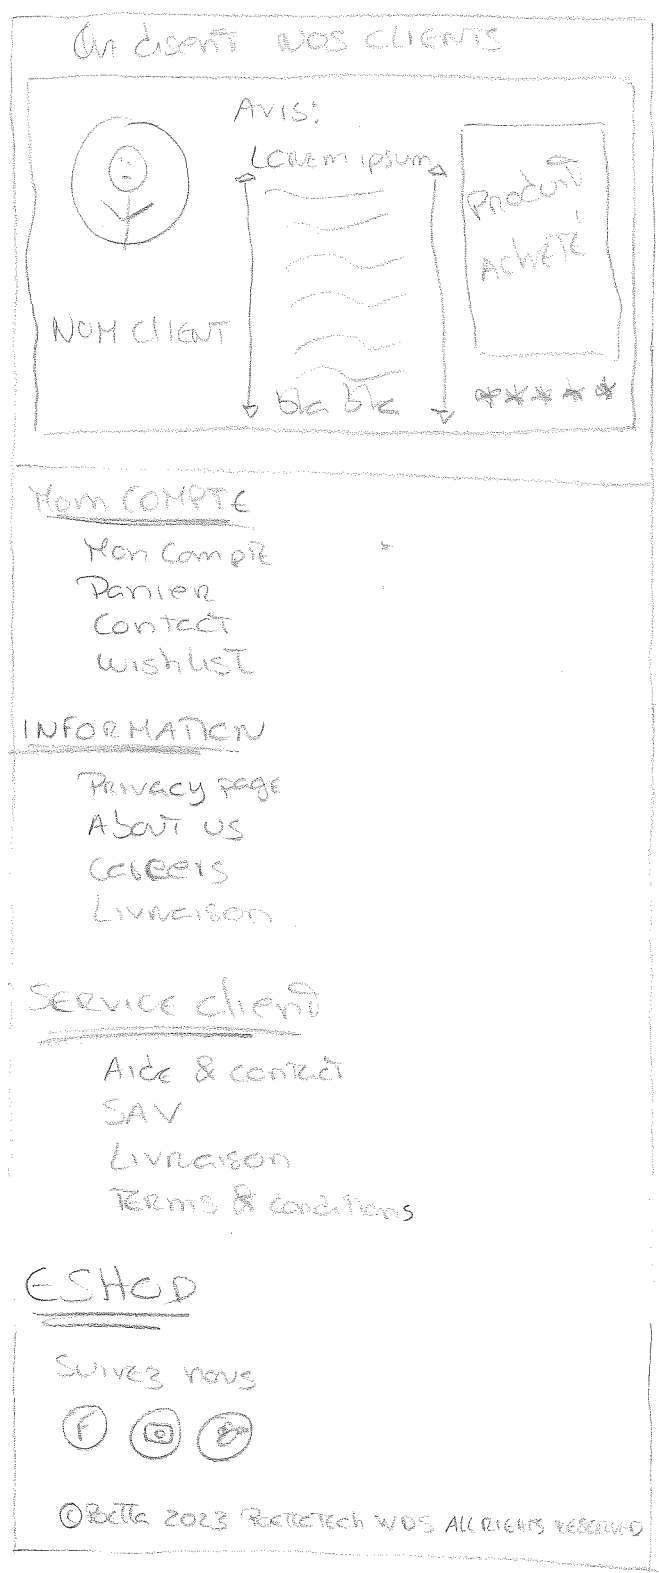 On disent NOS CLIENTS
AVIS:
LOREM ipsum
PRODUIT
ACHETÉ
NOM CLIENT
bla bla
Mon COMPTE
Mon Compte
Panier
Contact
Wishlist
INFORMATION
Privacy page
About us
Careers
Livraison
SERVICE client
Aide & contact
SAV
Livraison
Terms & conditions
ESHOP
Suivez nous
F
2023
WDS ALL RIGHTS RESERVED